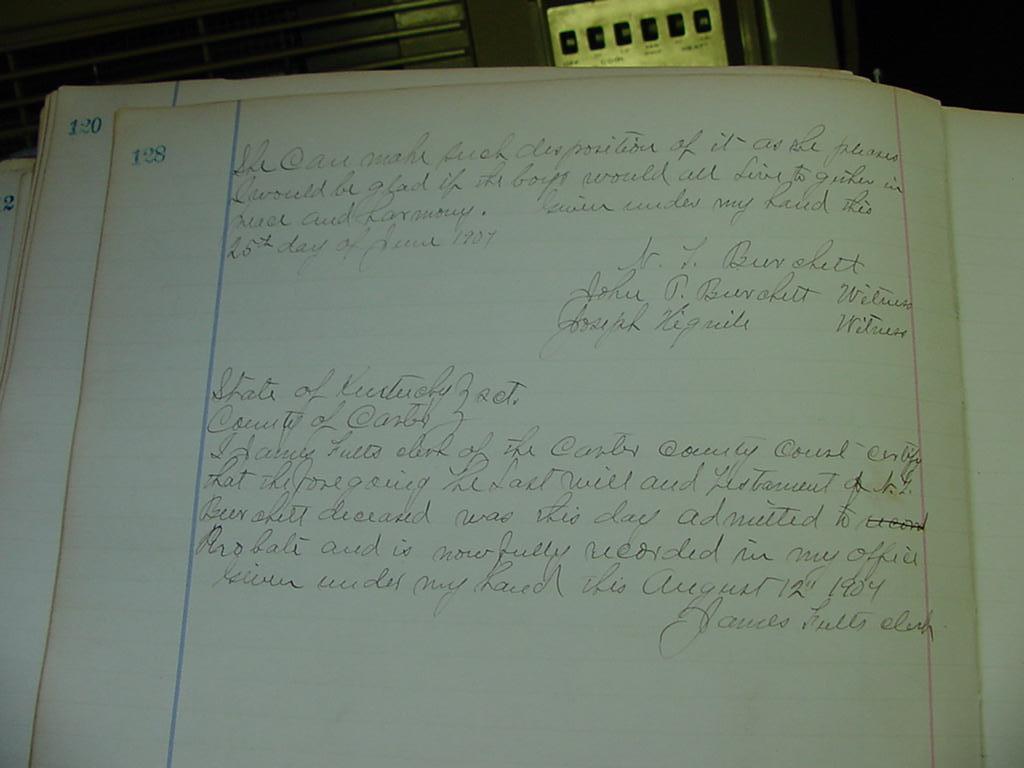 120
128
2
She Can make such disposition of it as she pleases
I would be glad if the boys would all Live to gether in
peace and harmony. Given under my hand this
25th day of June 1907
Burchett
John P. Burchett Witness
Joseph Witness
State of Kentucky } sct.
County of Carter
I James Fults clerk of the Carter County Court certify
that the foregoing the Last will and Testament of
Burchett deceased was this day admitted to record
Probate and is now fully recorded in my office
Given under my hand this August 12" 1907
James Fults clerk
COOL
HEAT